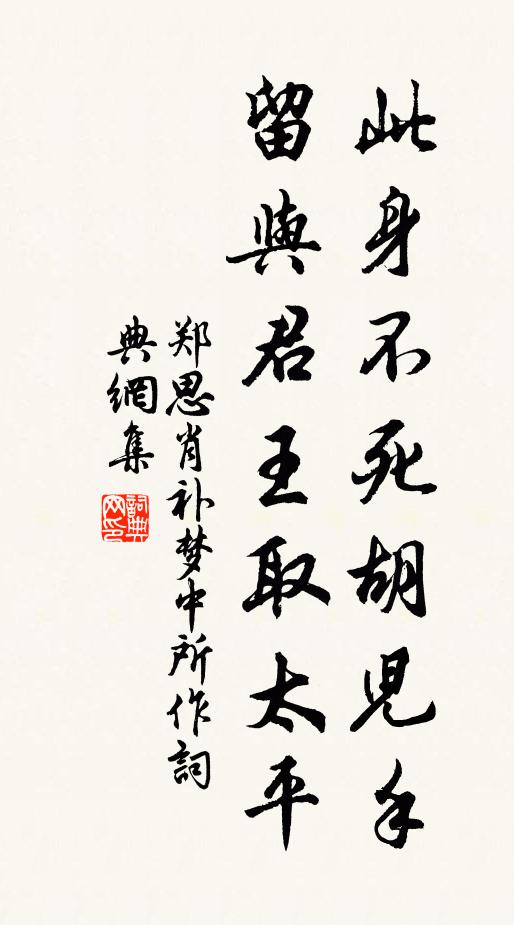 此身不死胡兒手
留與君王取太平
郑思肖补梦中所作詞
典網集
詞典網印